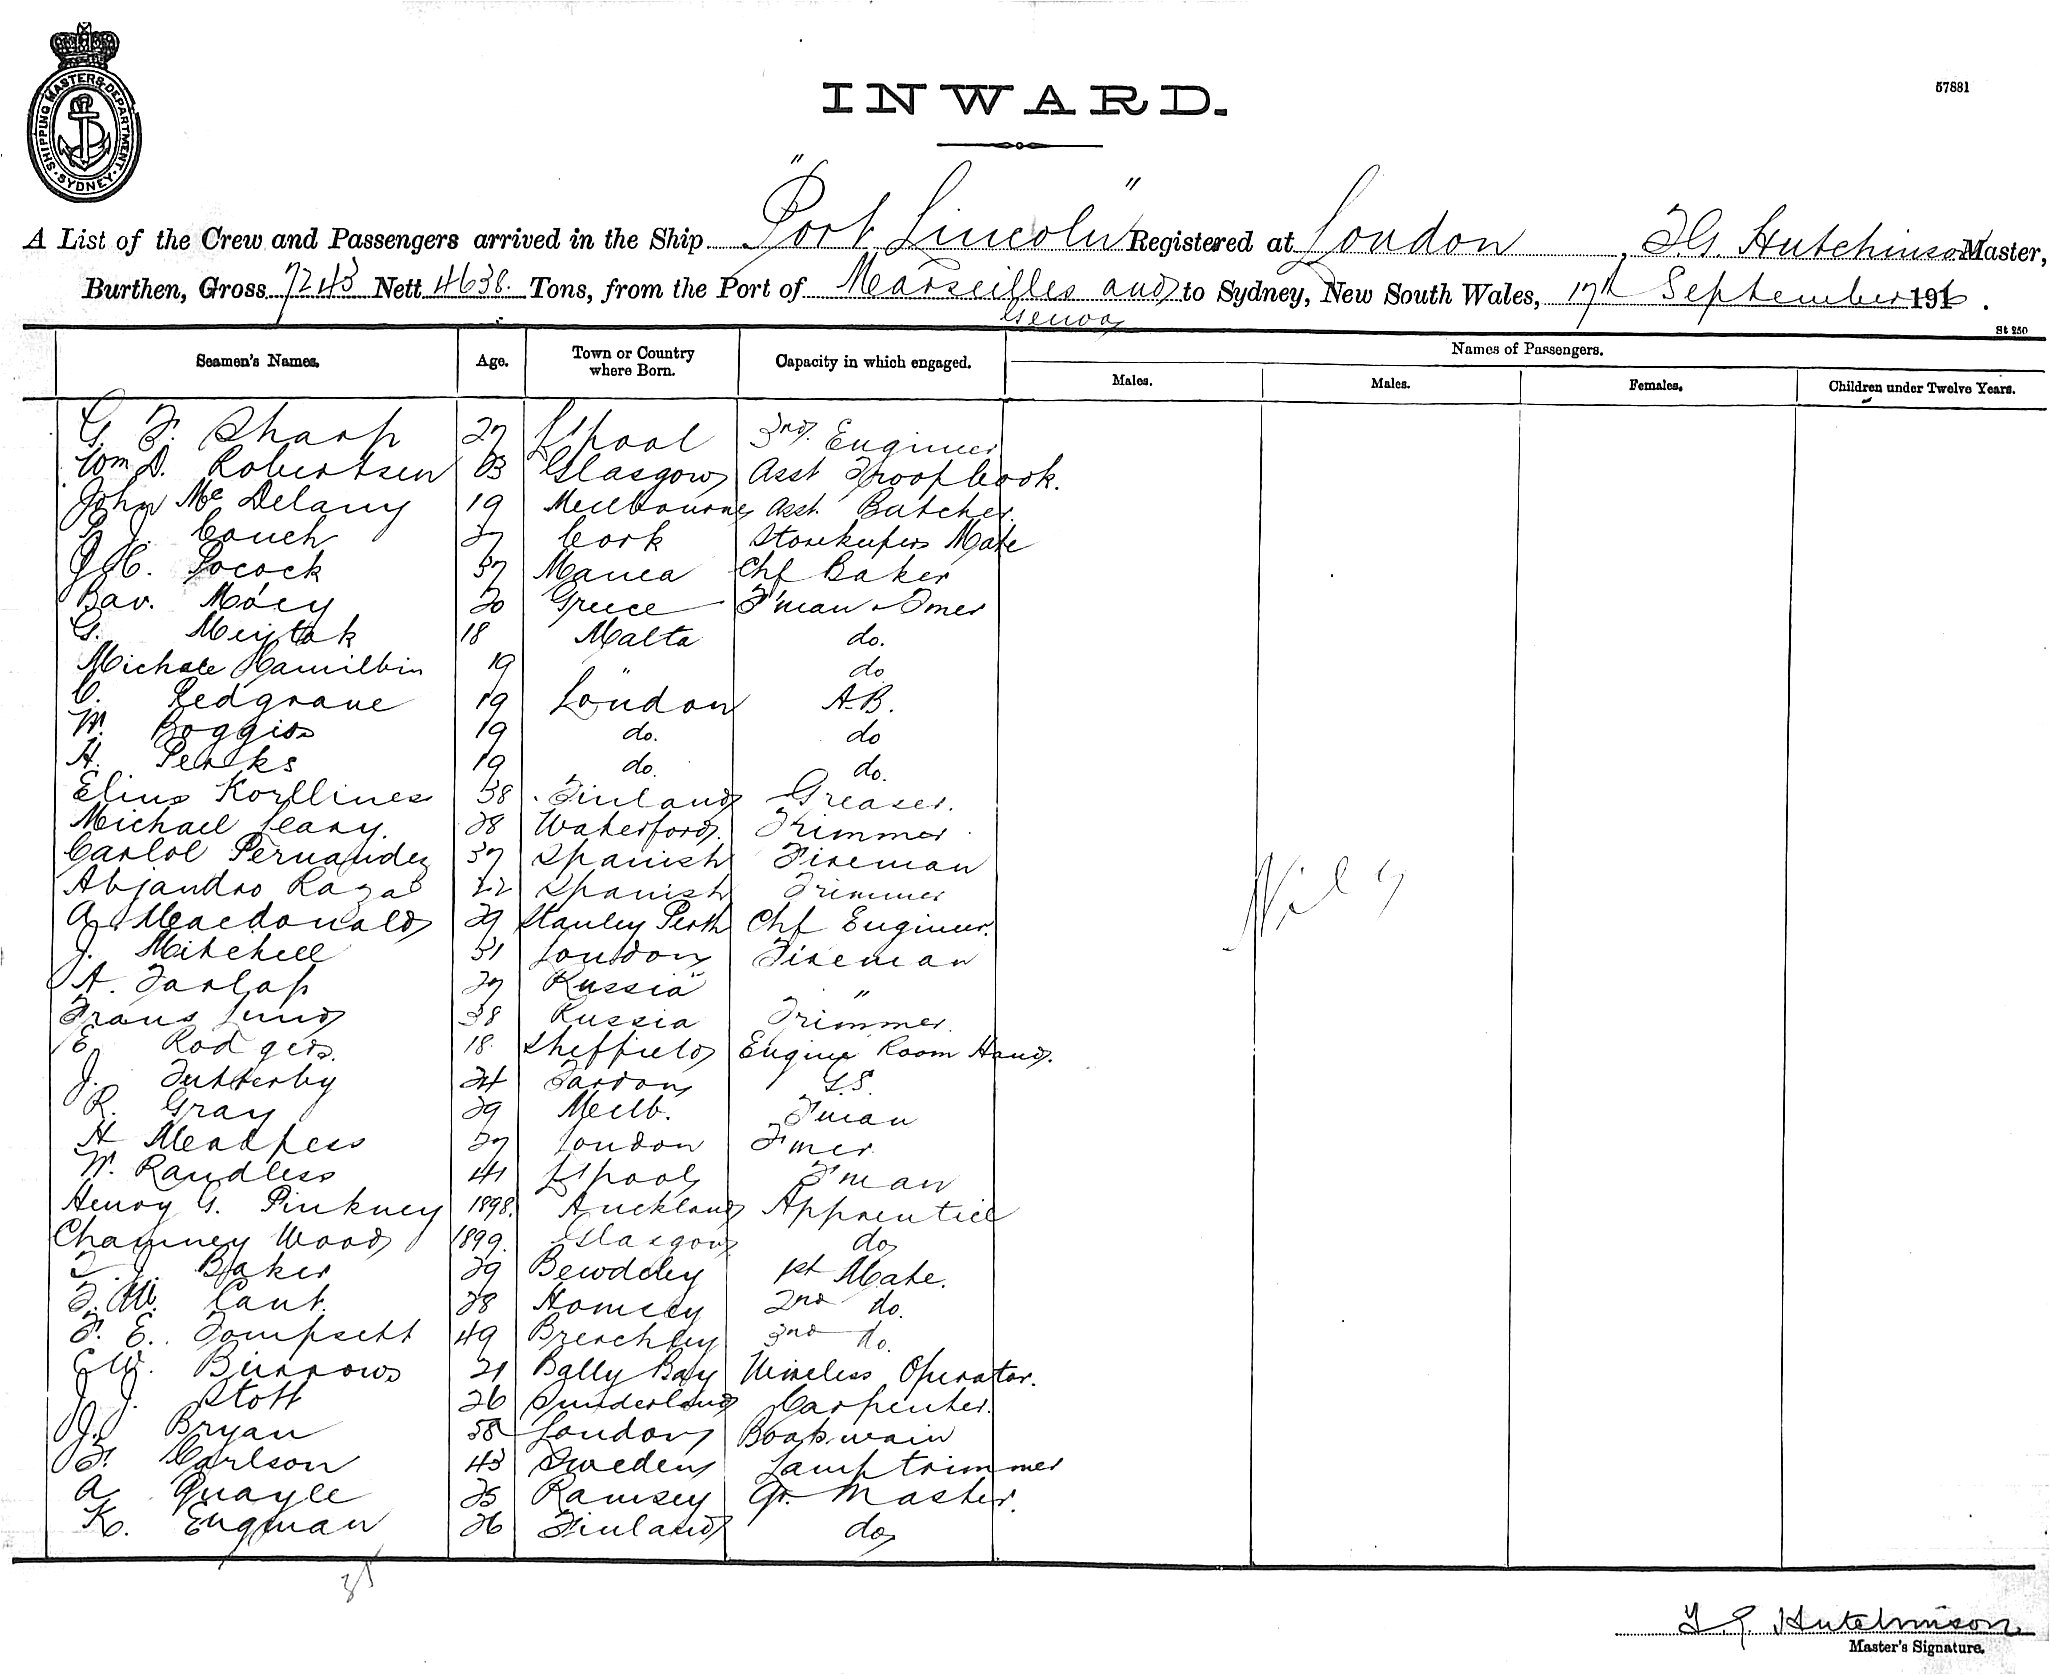 SHIPPING MASTERS DEPARTMENT
SYDNEY
INWARD.
57881
A List of the Crew and Passengers arrived in the Ship "Port Lincoln" Registered at London, Hutchinson Master,
Burthen, Gross 7243 Nett 4638. Tons, from the Port of Marseilles and to Sydney, New South Wales, 17th September 1916.
Genoa
St 250
Seamen's Names. Age. Town or Country where Born. Capacity in which engaged. Names of Passengers.
Males. Males. Females. Children under Twelve Years.
G. F. Sharp 27 L'pool 3rd. Engineer
Wm D. Robertson Glasgow Asst Troop Cook.
John Mc Delany 19 Melbourne Asst. Butcher.
Couch 27 Cork Storekeepers Mate
Pocock 37 Manea Chf Baker
20 Greece F'man & Tmer
G. 18 Malta do.
19 " do
C. Redgrave 19 London A.B.
W. Boggis 19 do. do
H. Perks 19 do. do.
38 Finland Greaser.
Michael Leary. 28 Waterford. Trimmer
Fernandez 37 Spanish Fireman
22 Spanish Trimmer
A Macdonald 29 Stanley Perth Chf Engineer.
J. Mitchell 31 London Fireman
A. 27 Russia "
Frans Lund 38 Russia Trimmer.
E. Rodgers. 18. Sheffield Engine Room Hand.
J. 24
R. Gray 29 Melb. F'man
H 27 London T'mer
W. Randless 41 L'pool F'man
Henry G. Pinkney 1898. Auckland Apprentice
Chamney Wood 1899. Glasgow do
Baker 29 Bewdley 1st Mate.
Cant. 28 2nd do.
F. E. Tompsett 49 Brenchley 3rd do.
Burrows 21 Bally Bay Wireless Operator.
J. J. Stott 26 Sunderland Carpenter.
J. Bryan London Boatswain
Carlson 43 Sweden Lamptrimmer
A Quayle 25 Ramsey Qr. Master.
K. Engman 26 Finland do
Nil
35
Hutchinson
Master's Signature.